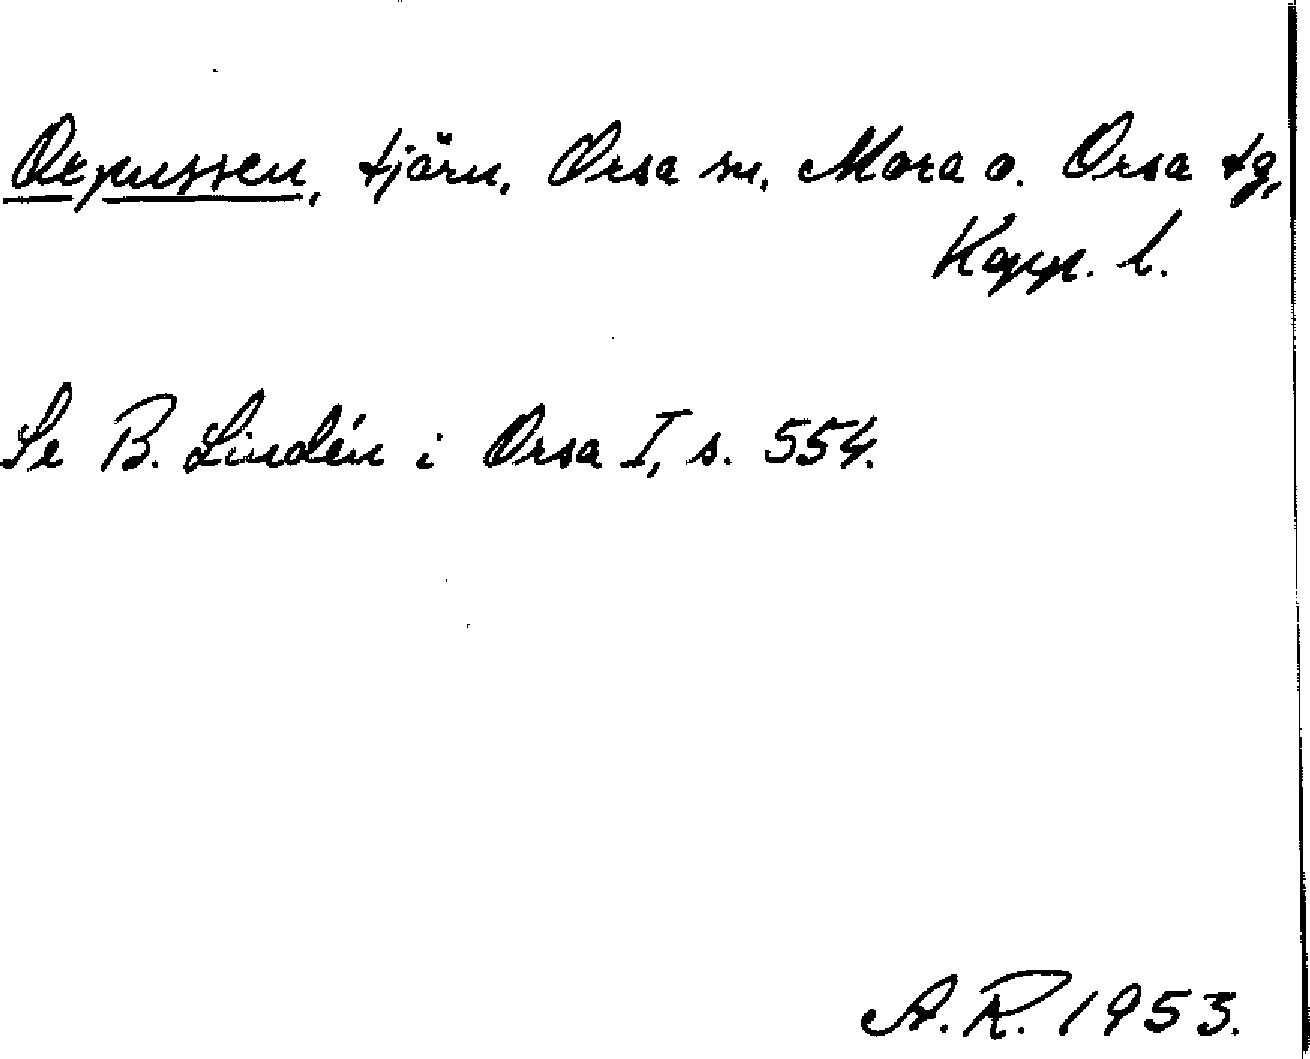 Oxpussen, tjärn, Orsa sn, Mora o. Orsa tg,
Kopp. l.
Se B. Lindén i Orsa I, s. 554.
A.R. 1953.